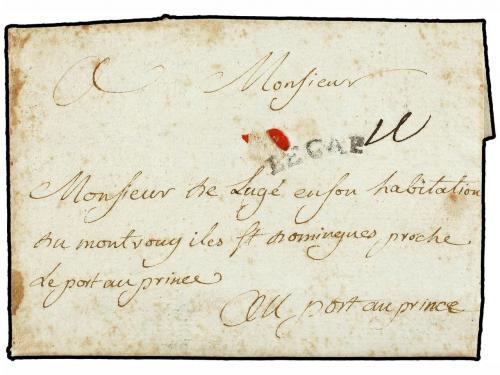 A Monsieur
LE CAP
Monsieur de Lugé en son habitation
du montrouy iles st domingues, proche
Le port au prince
Au port au prince